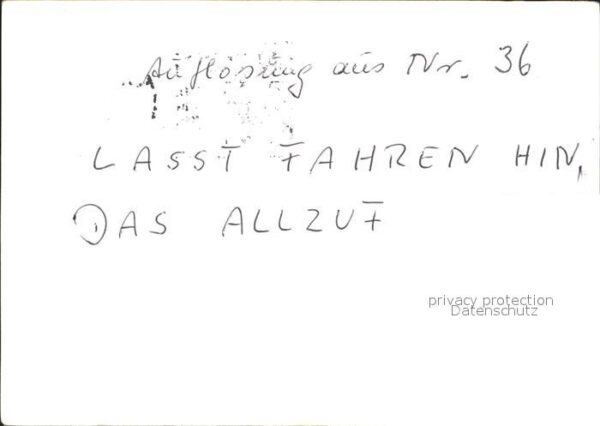 Auflösung aus Nr. 36
LASST FAHREN HIN,
DAS ALLZUF
privacy protection
Datenschutz